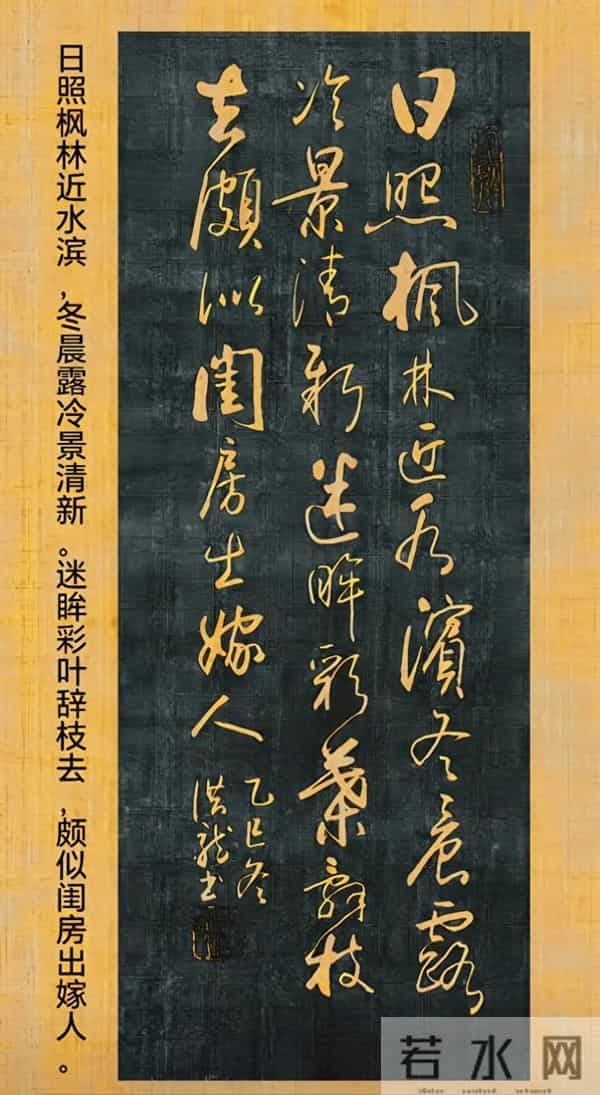 日照楓林近水濱冬晨露
冷景清新迷眸彩葉辭枝
去頗似閨房出嫁人
乙巳冬
洪龍书
日照枫林近水滨,冬晨露冷景清新。迷眸彩叶辞枝去,颇似闺房出嫁人。
若水网